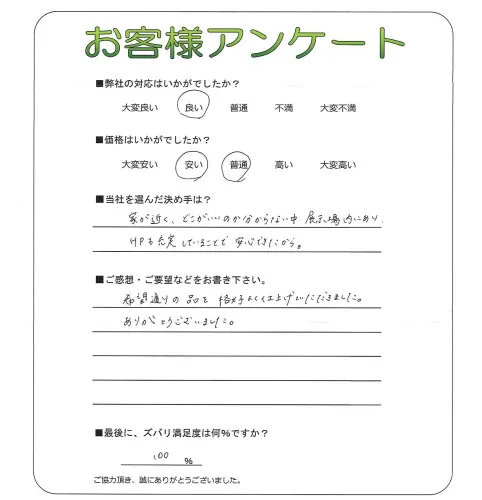 お客様アンケート
■弊社の対応はいかがでしたか？
大変良い 良い 普通 不満 大変不満
■価格はいかがでしたか？
大変安い 安い 普通 高い 大変高い
■当社を選んだ決め手は？
家が近く、どこがいいのか分からない中 展示場内にあり、
HPも充実していることで安心できたから。
■ご感想・ご要望などをお書き下さい。
希望通りの品を格好よく仕上げていただきました。
ありがとうございました。
■最後に、ズバリ満足度は何％ですか？
100 ％
ご協力頂き、誠にありがとうございました。